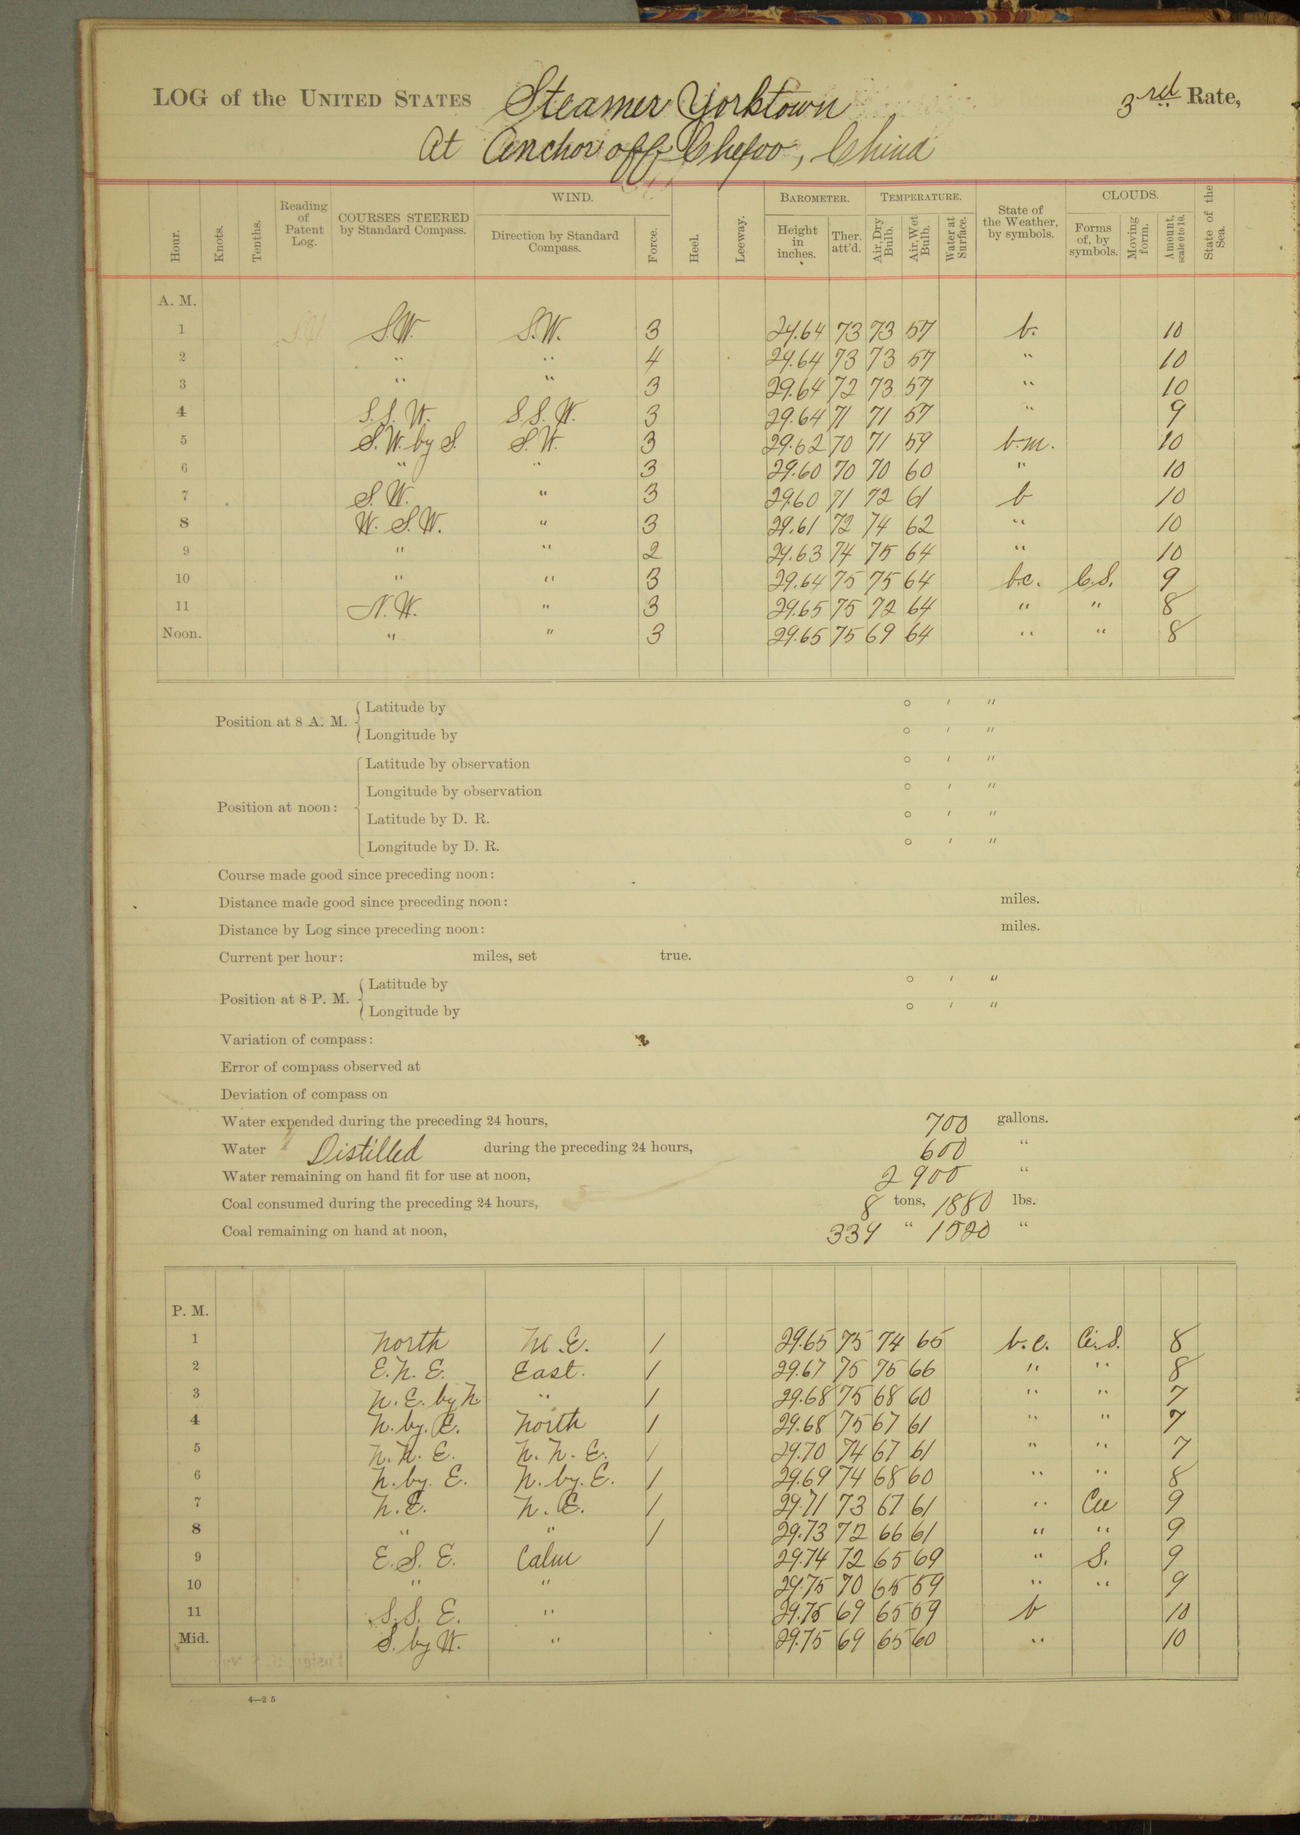 LOG of the UNITED STATES Steamer Yorktown 3rd Rate,
At Anchor off Chefoo, China
Hour. Knots. Tenths. Reading of Patent Log. COURSES STEERED by Standard Compass. WIND. Direction by Standard Compass. Force. Heel. Leeway. BAROMETER. Height in inches. Ther. att'd. TEMPERATURE. Air, Dry Bulb. Air, Wet Bulb. Water at Surface. State of the Weather, by symbols. CLOUDS. Forms of, by symbols. Moving form. Amount, scale 0 to 10. State of the Sea.
A. M.
1 S.W. S.W. 3 29.64 73 73 57 b. 10
2 " " 4 29.64 73 73 57 " 10
3 " " 3 29.64 72 73 57 " 10
4 S.S.W. S.S.W. 3 29.64 71 71 57 " 9
5 S.W. by S. S.W. 3 29.62 70 71 59 b.m. 10
6 " " 3 29.60 70 70 60 " 10
7 S.W. " 3 29.60 71 72 61 b 10
8 W.S.W. " 3 29.61 72 74 62 " 10
9 " " 2 29.63 74 75 64 " 10
10 " " 3 29.64 75 75 64 b.c. C.S. 9
11 N.W. " 3 29.65 75 72 64 " " 8
Noon. " " 3 29.65 75 69 64 " " 8
Position at 8 A. M. { Latitude by ° ′ ″
Longitude by ° ′ ″
Position at noon: { Latitude by observation ° ′ ″
Longitude by observation ° ′ ″
Latitude by D. R. ° ′ ″
Longitude by D. R. ° ′ ″
Course made good since preceding noon:
Distance made good since preceding noon: miles.
Distance by Log since preceding noon: miles.
Current per hour: miles, set true.
Position at 8 P. M. { Latitude by ° ′ ″
Longitude by ° ′ ″
Variation of compass:
Error of compass observed at
Deviation of compass on
Water expended during the preceding 24 hours, 700 gallons.
Water Distilled during the preceding 24 hours, 600 "
Water remaining on hand fit for use at noon, 2900 "
Coal consumed during the preceding 24 hours, 8 tons, 1880 lbs.
Coal remaining on hand at noon, 334 " 1520 "
P. M.
1 North N.E. 1 29.65 75 74 65 b.c. Ci.S. 8
2 E.N.E. East. 1 29.67 75 75 66 " " 8
3 N.E. by N " 1 29.68 75 68 60 " " 7
4 N. by. E. North 1 29.68 75 67 61 " " 7
5 N.N.E. N.N.E. 1 29.70 74 67 61 " " 7
6 N. by. E. N. by. E. 1 29.69 74 68 60 " " 8
7 N.E. N.E. 1 29.71 73 67 61 " Cu 9
8 " " 1 29.73 72 66 61 " " 9
9 E.S.E. Calm 29.74 72 65 69 " S. 9
10 " " 29.75 70 65 59 " " 9
11 S.S.E. " 29.75 69 65 59 b 10
Mid. S. by W. " 29.75 69 65 60 " 10
4—2 5